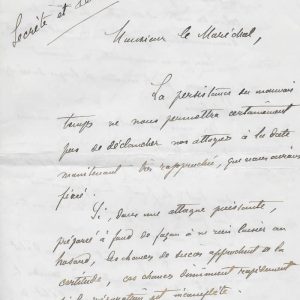 Secrète et
Monsieur le Maréchal,
La persistance du mauvais
temps ne nous permettra certainement
pas de déclancher nos attaques à la date
maintenant très rapprochée, que nous avions
fixée.
Si, dans une attaque puissante,
préparée à fond de façon à ne rien laisser au
hasard, les chances de succès approchent de la
certitude, ces chances diminuent rapidement
si la préparation est incomplète.